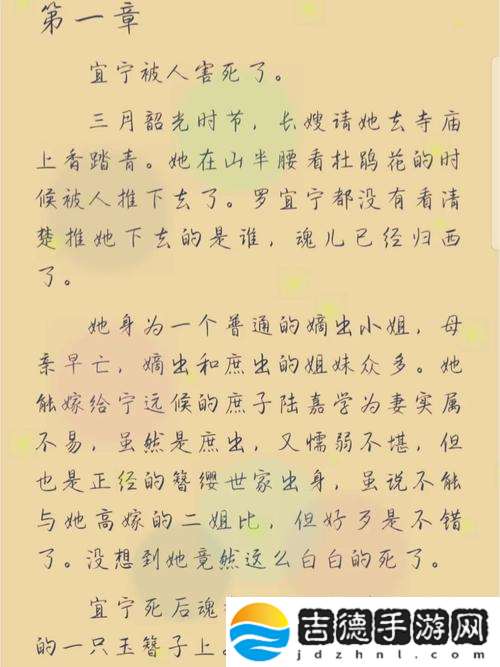 第一章
宜宁被人害死了。
三月韶光时节，长嫂请她去寺庙
上香踏青。她在山半腰看杜鹃花的时
候被人推下去了。罗宜宁都没有看清
楚推她下去的是谁，魂儿已经归西
了。
她身为一个普通的嫡出小姐，母
亲早亡，嫡出和庶出的姐妹众多。她
能嫁给宁远候的庶子陆嘉学为妻实属
不易，虽然是庶出，又懦弱不堪，但
也是正经的簪缨世家出身，虽说不能
与她高嫁的二姐比，但好歹是不错
了。没想到她竟然这么白白的死了。
宜宁死后魂
的一只玉簪子上。
吉德手游网
jdzhnl.com